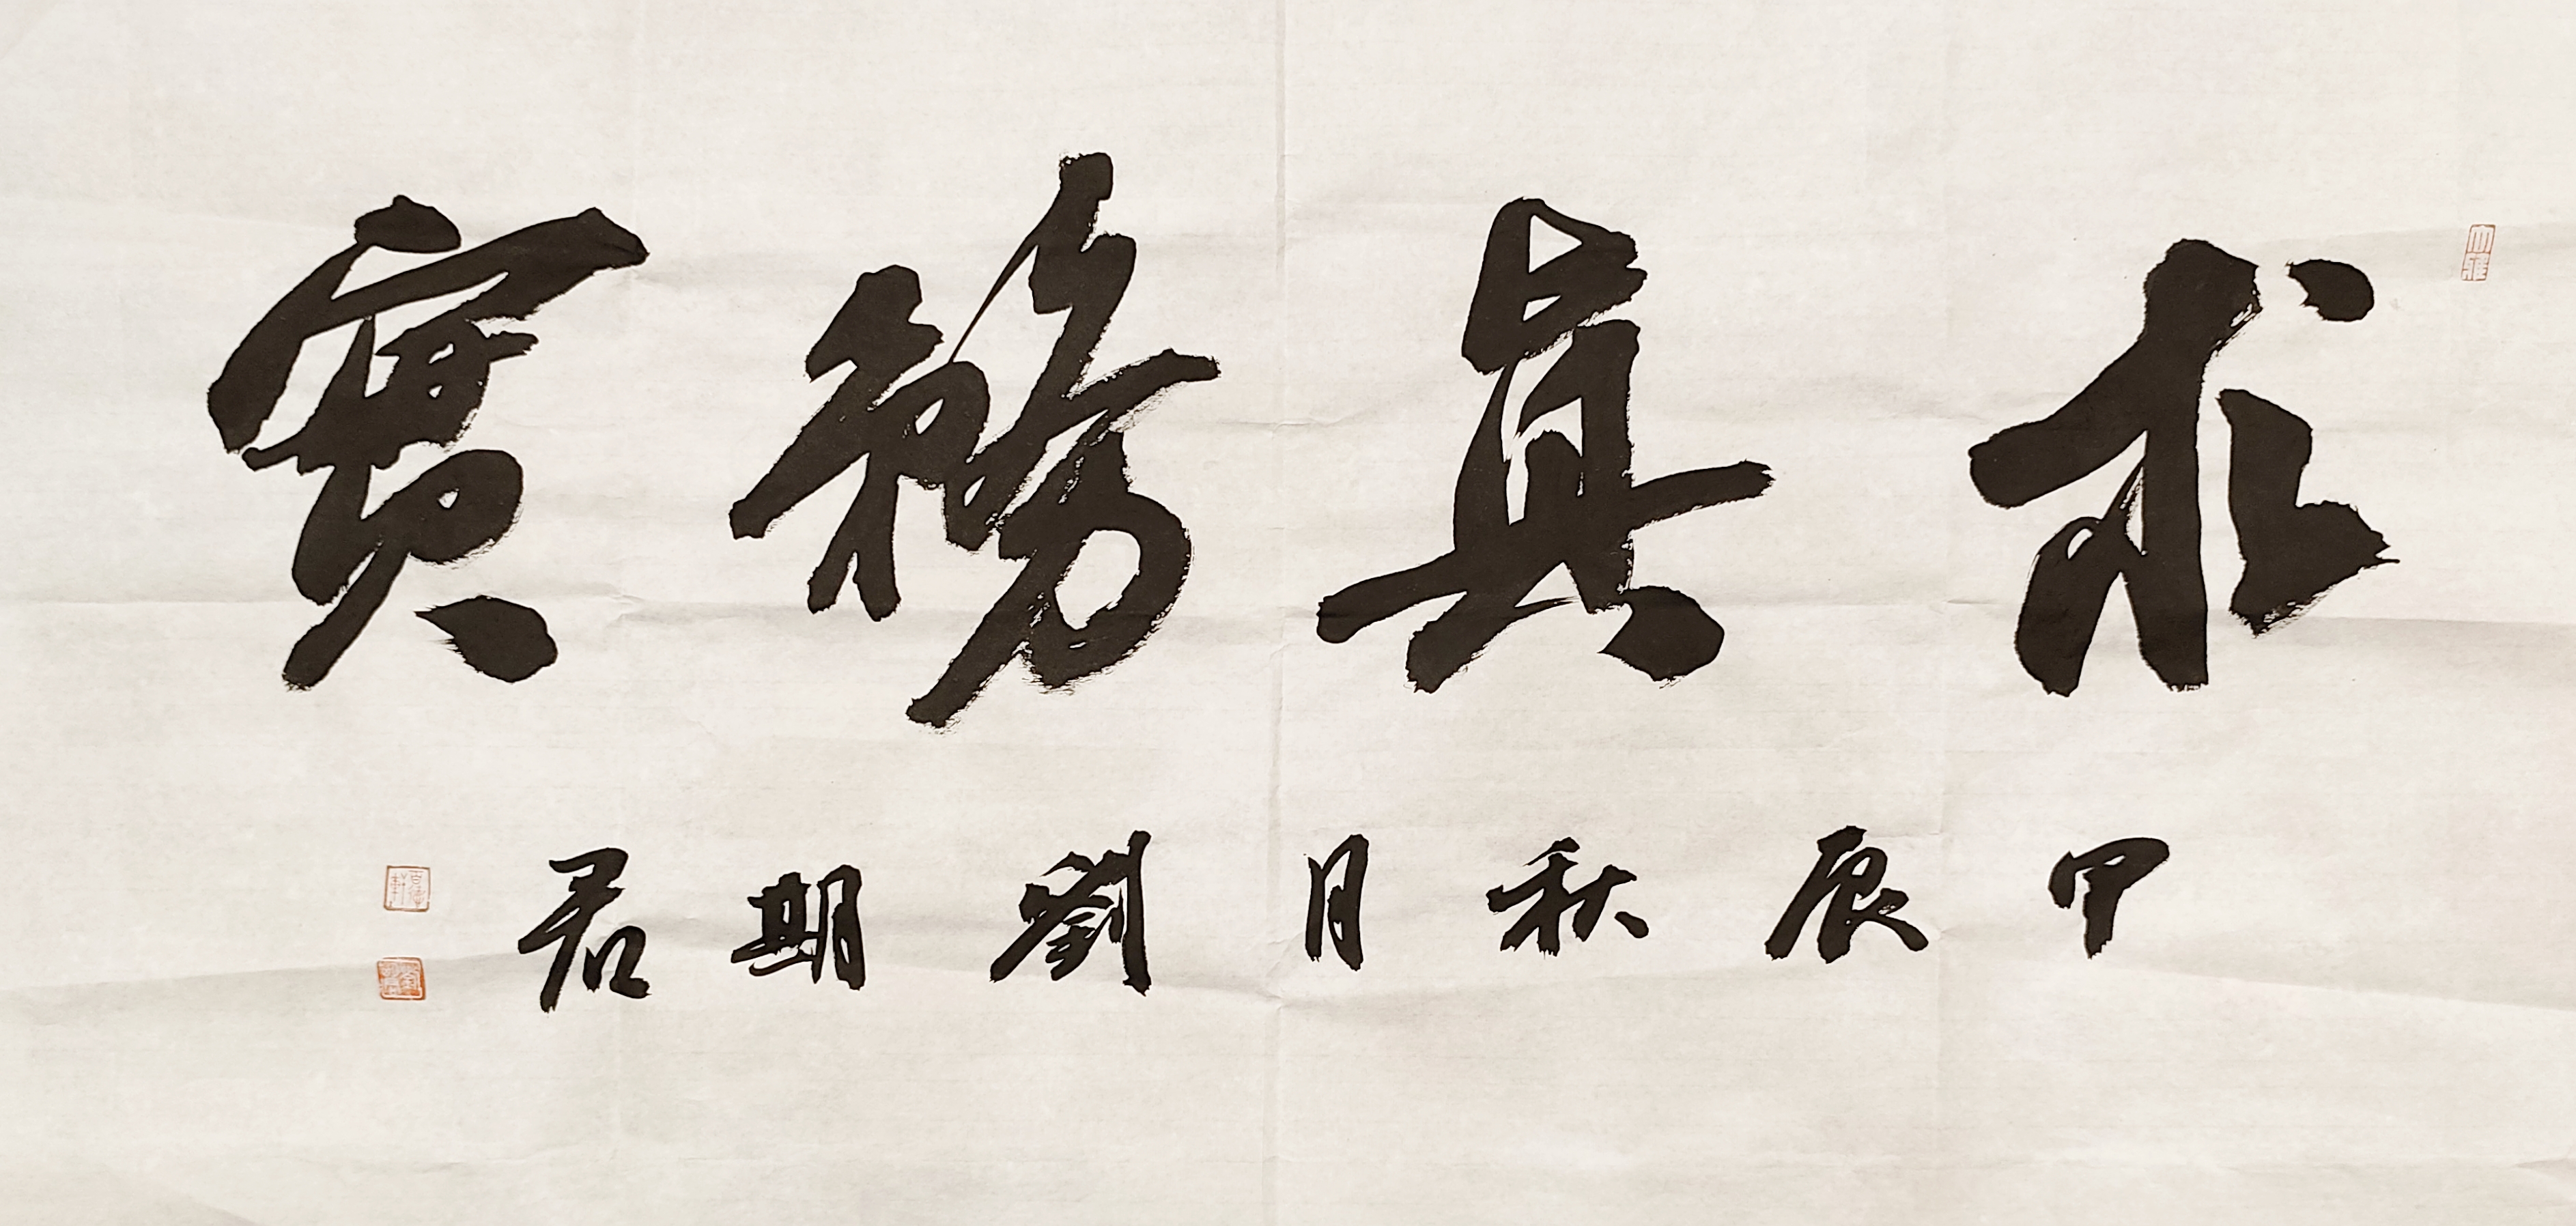 求真務實
甲辰秋月劉期君